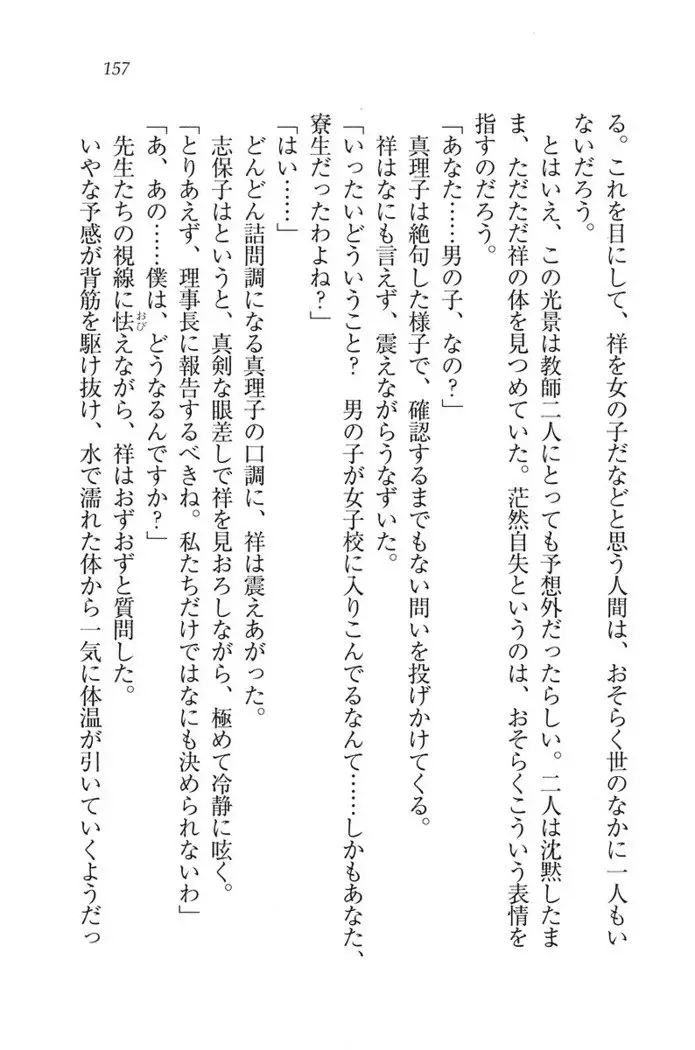 157
る。これを目にして、祥を女の子だなどと思う人間は、おそらく世のなかに一人もい
ないだろう。
とはいえ、この光景は教師二人にとっても予想外だったらしい。二人は沈黙したま
ま、ただただ祥の体を見つめていた。茫然自失というのは、おそらくこういう表情を
指すのだろう。
「あなた……男の子、なの？」
真理子は絶句した様子で、確認するまでもない問いを投げかけてくる。
祥はなにも言えず、震えながらうなずいた。
「いったいどういうこと？　男の子が女子校に入りこんでるなんて……しかもあなた、
寮生だったわよね？」
「はい……」
どんどん詰問調になる真理子の口調に、祥は震えあがった。
志保子はというと、真剣な眼差しで祥を見おろしながら、極めて冷静に呟く。
「とりあえず、理事長に報告するべきね。私たちだけではなにも決められないわ」
「あ、あの……僕は、どうなるんですか？」
先生たちの視線に怯おびえながら、祥はおずおずと質問した。
いやな予感が背筋を駆け抜け、水で濡れた体から一気に体温が引いていくようだっ